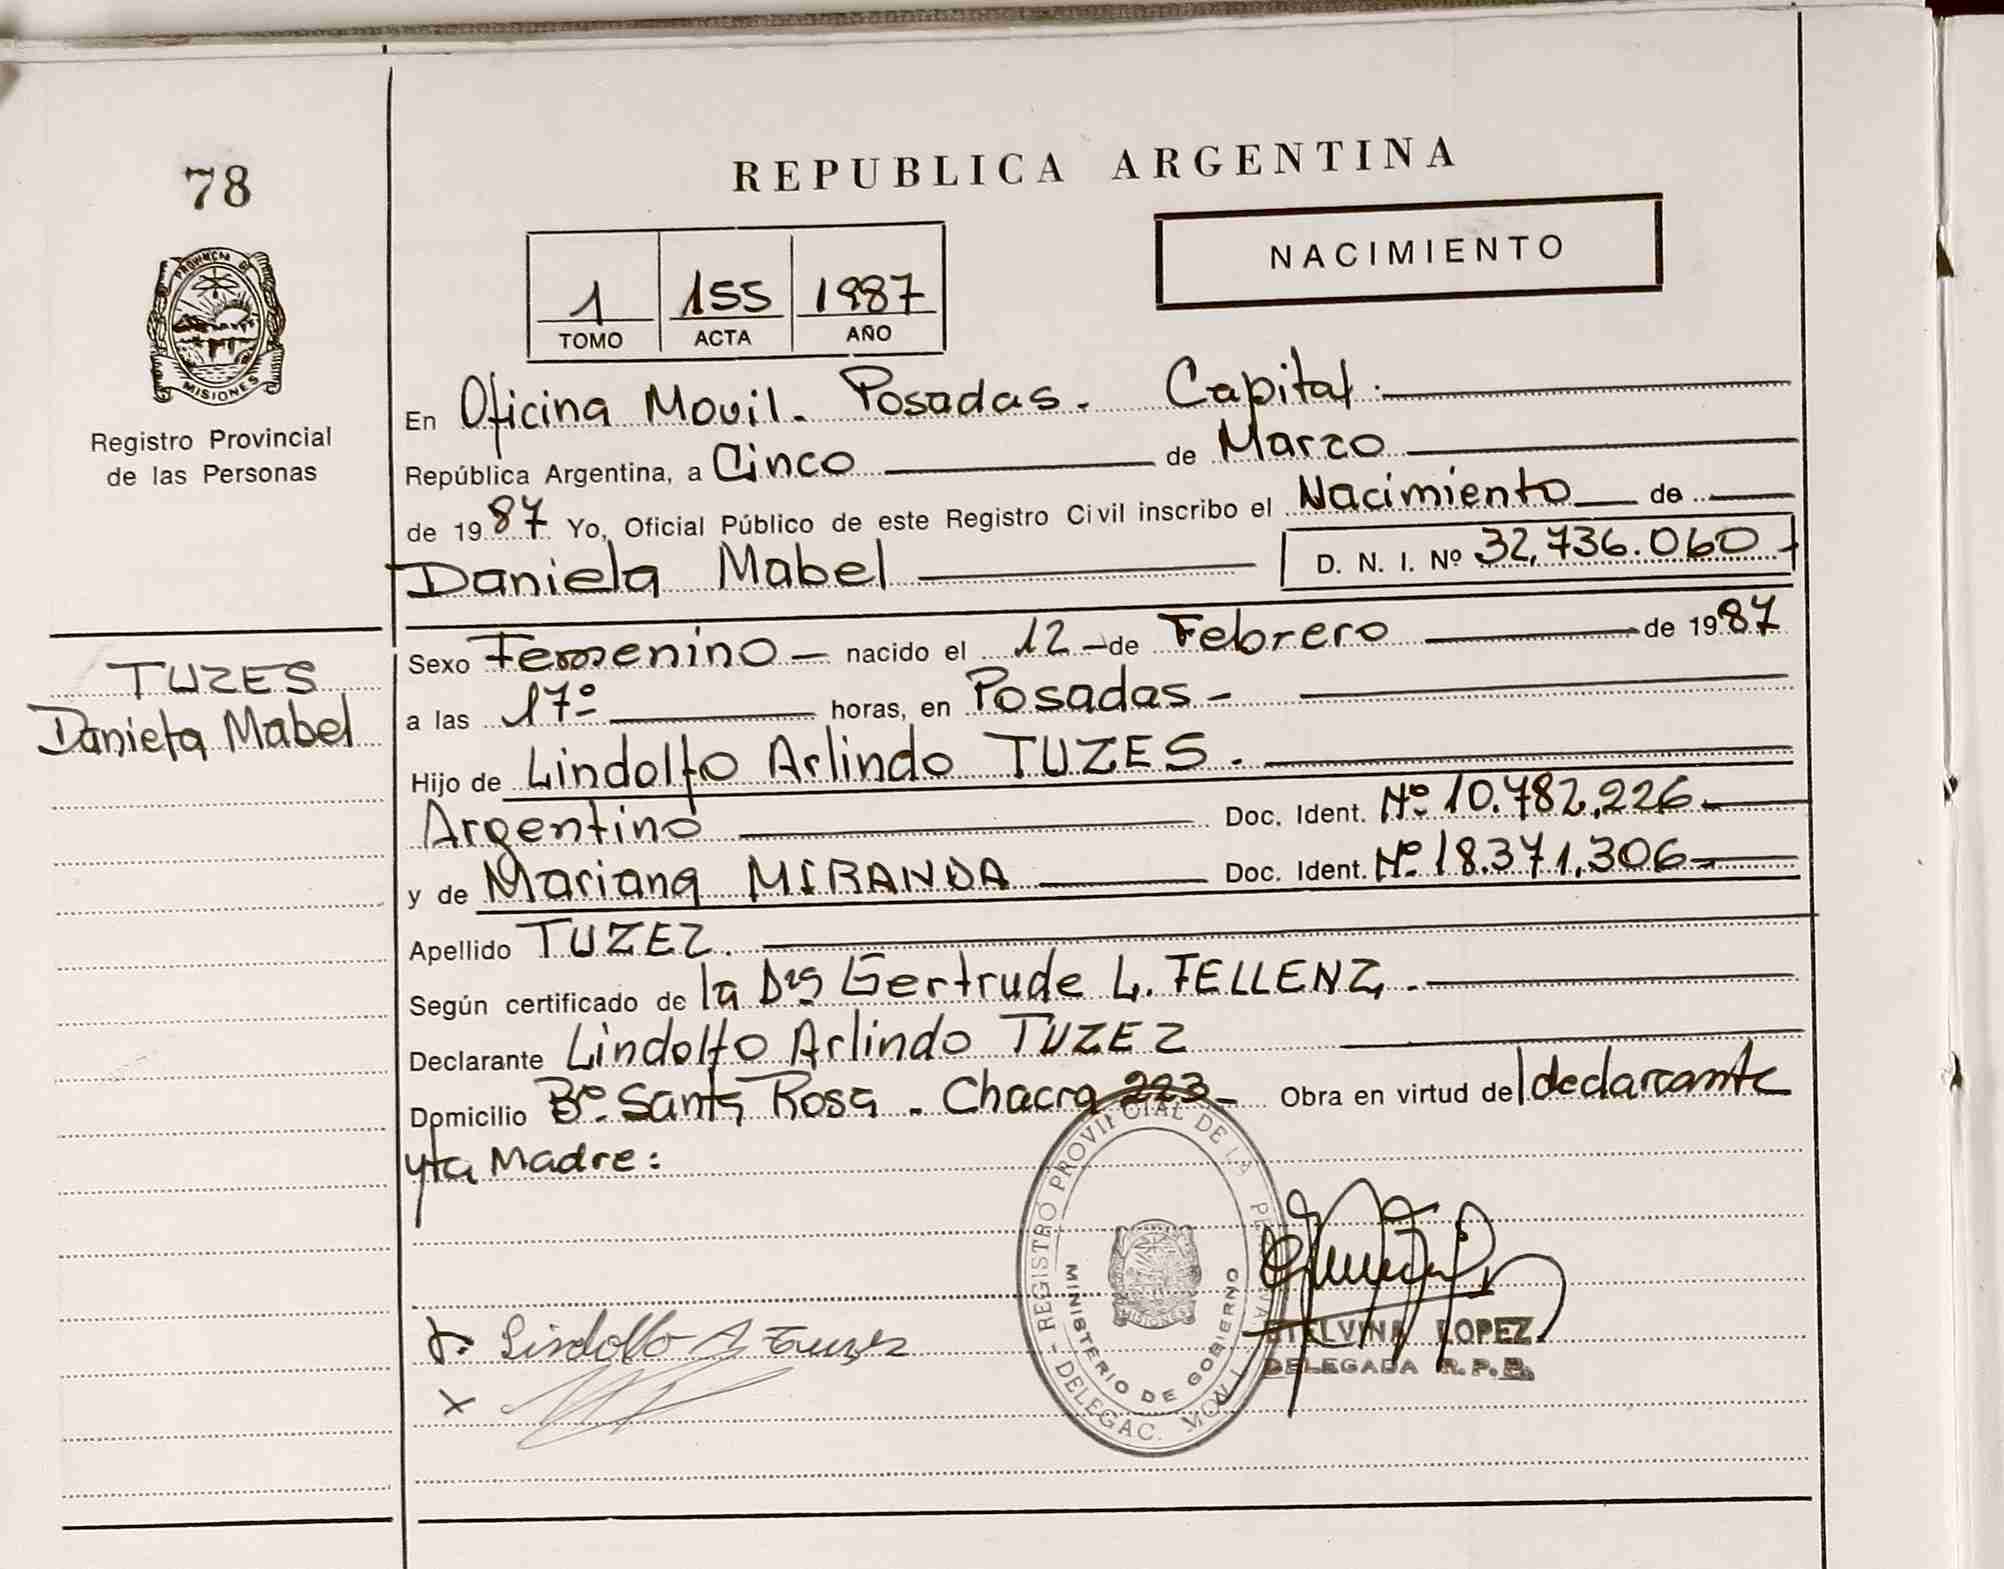 78
PROVINCIA DE
MISIONES
Registro Provincial
de las Personas
TUZES
Daniela Mabel
REPUBLICA ARGENTINA
NACIMIENTO
1 155 1987
TOMO ACTA AÑO
En Oficina Movil. Posadas. Capital.
República Argentina, a Cinco de Marzo
de 1987 Yo, Oficial Público de este Registro Civil inscribo el Nacimiento de
Daniela Mabel D. N. I. Nº 32,736.060
Sexo Femenino nacido el 12 de Febrero de 1987
a las 17º horas, en Posadas
Hijo de Lindolfo Arlindo TUZES.
Argentino Doc. Ident. Nº 10.782,226
y de Mariana MIRANDA Doc. Ident. Nº 18.371,306
Apellido TUZEZ.
Según certificado de la Dra Gertrude L. FELLENZ.
Declarante Lindolfo Arlindo TUZEZ
Domicilio Bº. Santa Rosa. Chacra 223 Obra en virtud del declarante
y la Madre:
REGISTRO PROVINCIAL DE LA
MINISTERIO DE GOBIERNO
DELEGAC. MOVIL
Lindolfo A Tuzes
ETELVINA LOPEZ
DELEGADA R.P.P.